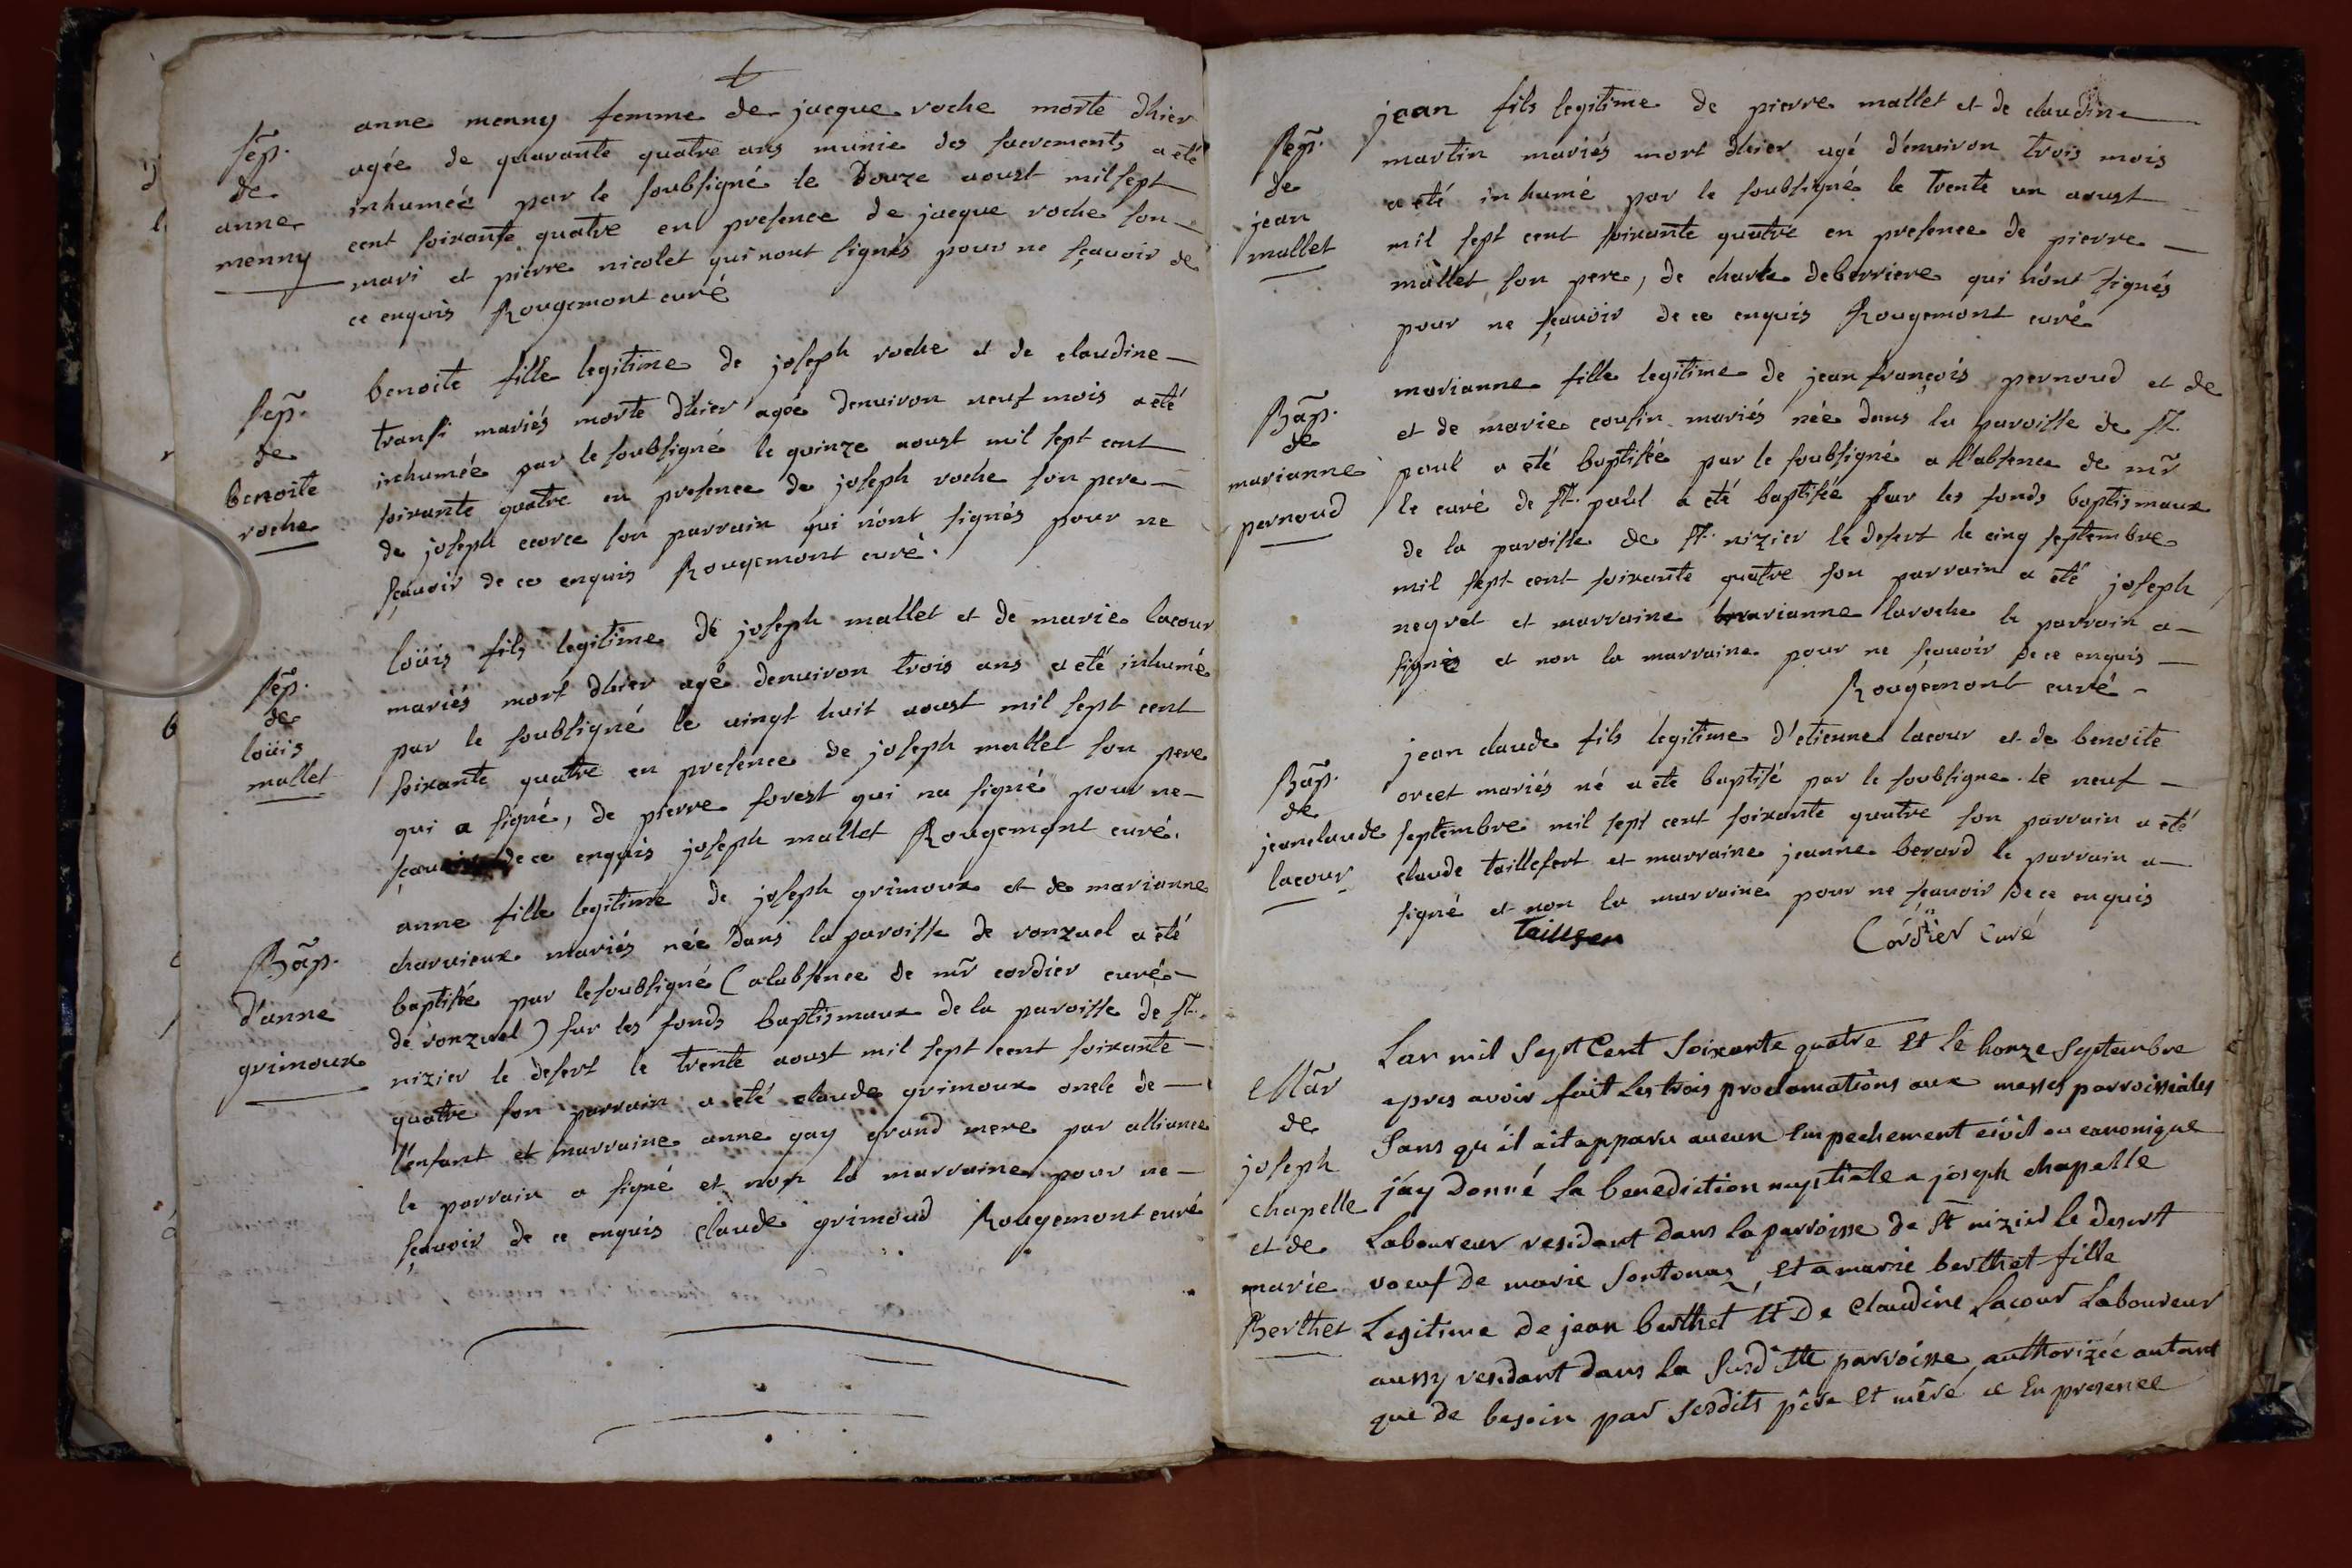 Sep. de anne menny
anne menny femme de jacque roche morte dhier
agée de quarante quatre ans munie des sacrements a eté
inhumée par le soubsigné le Douze aoust mil sept
cent soixante quatre en presence de jacque roche son
mari et pierre nicolet qui nont signés pour ne sçavoir de
ce enquis Rougemont curé
Sep. de benoite roche
benoite fille legitime de joseph roche et de claudine
transi mariés morte dhier agée denviron neuf mois a eté
inhumée par le soubsigné le quinze aoust mil sept cent
soixante quatre en presence de joseph roche son pere
de joseph ecorce son parrain qui n'ont signés pour ne
sçavoir de ce enquis Rougemont curé.
Sep. de loüis mallet
loüis fils legitime de joseph mallet et de marie lacour
mariés mort dhier agé denviron trois ans a eté inhumé
par le soubsigné le vingt huit aoust mil sept cent
soixante quatre en presence de joseph mallet son pere
qui a signé, de pierre forest qui na signé pour ne
sçavoir de ce enquis joseph mallet Rougemont curé.
Bap. d'anne grimoux
anne fille legitime de joseph grimoux et de marianne
charvieux mariés née dans la paroisse de ronzuel a eté
baptisée par le soubsigné (a labsence de mr cordier curé
de ronzuel) sur les fonds baptismaux de la paroisse de st.
nizier le desert le trente aoust mil sept cent soixante
quatre son parrain a eté claude grimoux oncle de
l'enfant et marraine anne gay grand mere par alliance
le parrain a signé et non la marraine pour ne
sçavoir de ce enquis Claude grimoud Rougemont curé
Sep. de jean mallet
jean fils legitime de pierre mallet et de claudine
martin mariés mort dhier agé d'environ trois mois
a eté inhumé par le soubsigné le trente un aoust
mil sept cent soixante quatre en presence de pierre
mallet son pere, de charle deberriere qui n'ont signés
pour ne sçavoir de ce enquis Rougemont curé
Bap. de marianne pernoud
marianne fille legitime de jean françois pernoud et de
et de marie cousin mariés née dans la paroisse de st.
paul a eté baptisée par le soubsigné a l'absence de mr
le curé de st. paul a eté baptisée sur les fonds baptismaux
de la paroisse de st. nizier le desert le cinq septembre
mil sept cent soixante quatre son parrain a eté joseph
negret et marraine marianne laroche le parrain a
signés et non la marraine pour ne sçavoir de ce enquis
Rougemont curé
Bap. de jean claude lacour
jean claude fils legitime d'etienne lacour et de benoite
orcet mariés né a ete baptisé par le soubsigne le neuf
septembre mil sept cent soixante quatre son parrain a eté
claude taillefert et marraine jeanne berard le parrain a
signé et non la marraine pour ne sçavoir de ce enquis
Cordier Curé
Mar de joseph chapelle et de marie Berthet
Lan mil Sept Cent Soixante quatre Et le honze Septembre
apres avoir fait Les trois proclamations aux messes parroissiales
Sans qu'il ait apparu aucun Empechement civil ou canonique
j'ay Donné la benediction nuptiale a joseph chapelle
Laboureur residant dans la parroisse de St nizier le desert
voeuf de marie Sontonas, Et a marie berthet fille
Legitime de jean berthet Et De Claudine Lacour Laboureur
aussy residant dans la Susditte parroisse authorizée autant
que de besoin par Sesdits père Et mère et En presence